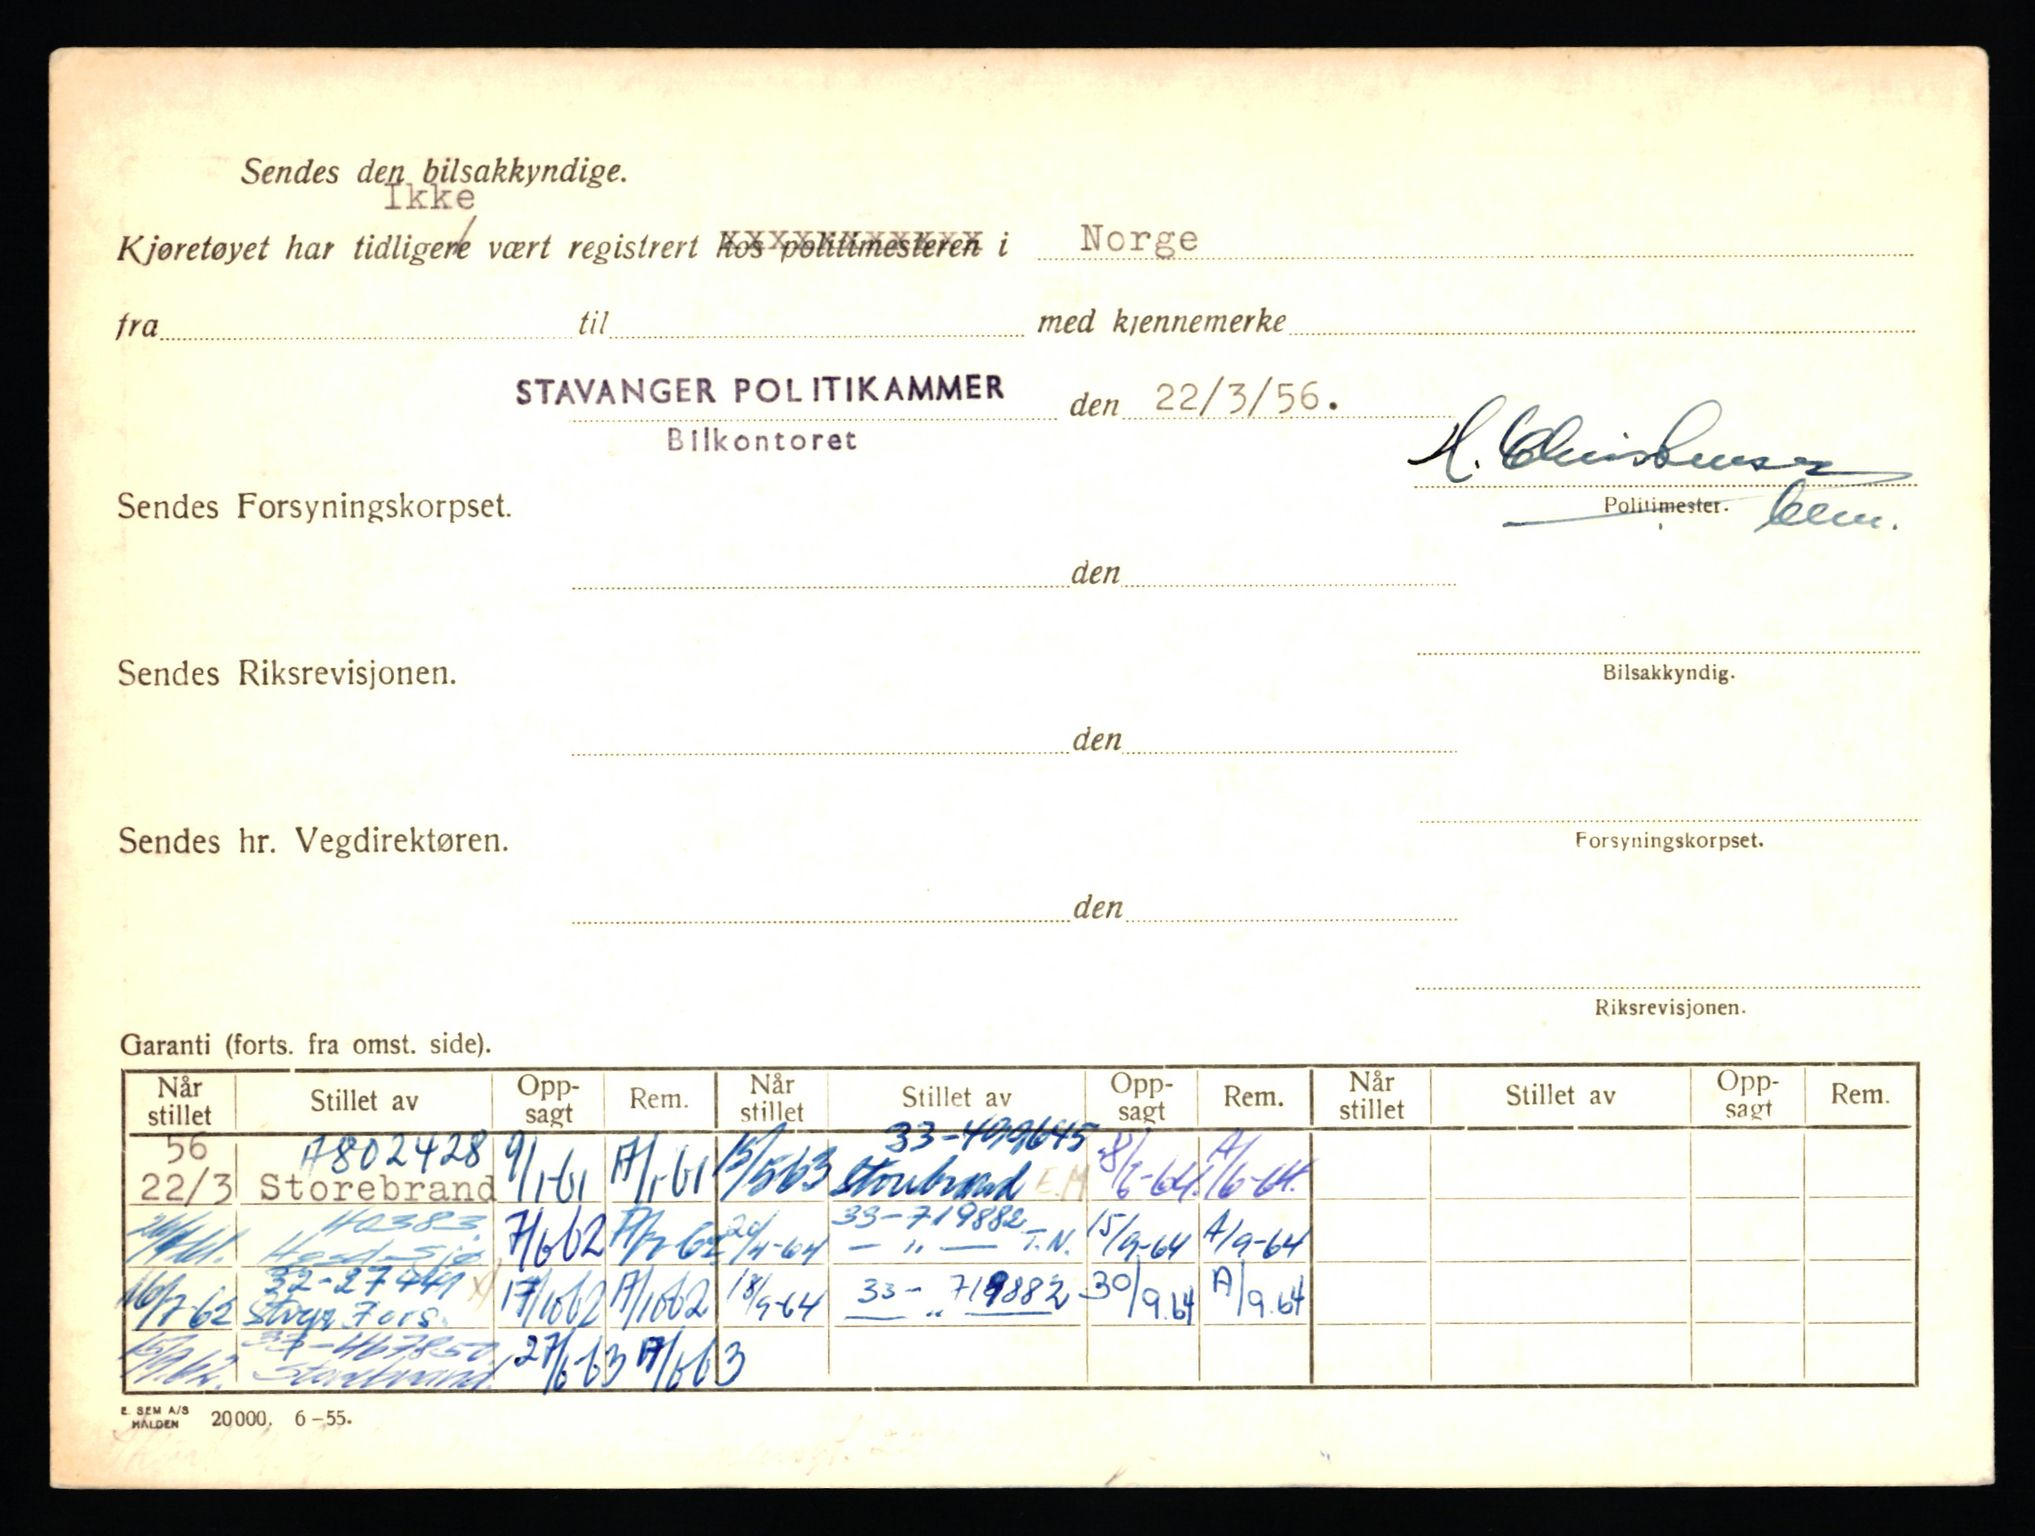 Sendes den bilsakkyndige.
Ikke
Kjøretøyet har tidligere / vært registrert hos politimesteren i Norge
fra til med kjennemerke
STAVANGER POLITIKAMMER den 22/3/56.
Bilkontoret
H. Christensen
Sendes Forsyningskorpset. Politimester.
den
Sendes Riksrevisjonen. Bilsakkyndig.
den
Sendes hr. Vegdirektøren. Forsyningskorpset.
den
Riksrevisjonen.
Garanti (forts. fra omst. side).
Når stillet Stillet av Oppsagt Rem. Når stillet Stillet av Oppsagt Rem. Når stillet Stillet av Oppsagt Rem.
56 A802428 33-499645
22/3 Storebrand 9/1-61 A/1-61 15/5-63 Storebrand E.M /6-64. A/6-64.
40383. 33-719882
7/6 62 A/7-62 20/4-64 — " — T.N. 15/9-64 A/9-64
32-27441
16/7-62 Fors. 17/10 62 A/10 62 18/9-64 33-719882 — " — 30/9.64 A/9.64
33-467850
15/9.62. Storebrand. 27/6-63 A/6 63
E. SEM A/S HALDEN 20000. 6-55.